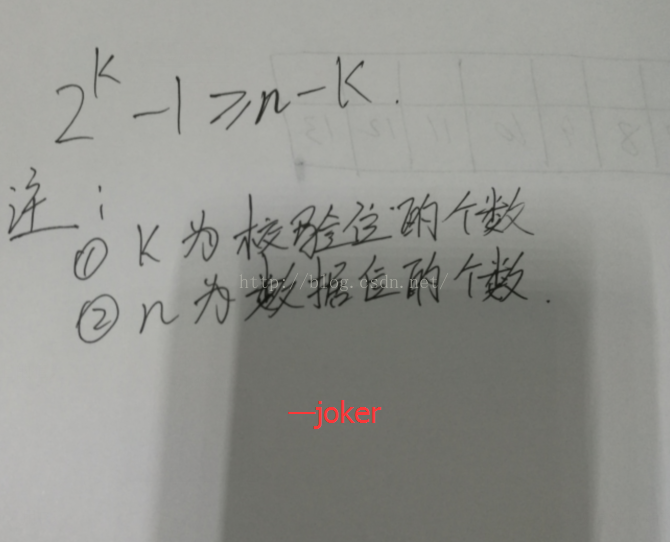 2^k -1 ≥ n-k.
注：
① K 为校验位的个数
② n 为数据位的个数.
http://blog.csdn.net/
—joker